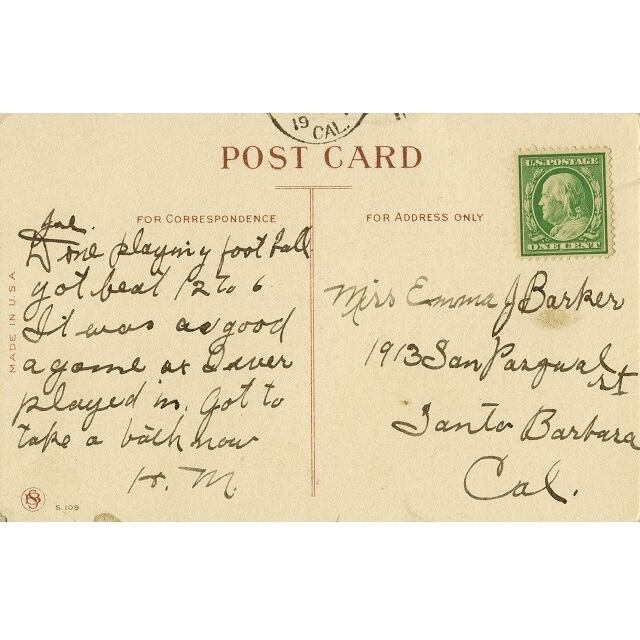 19
CAL.
POST CARD
U.S. POSTAGE
ONE CENT
FOR CORRESPONDENCE
FOR ADDRESS ONLY
Done playing foot ball
got beat 12 to 6
It was as good
a game as I ever
played in. Got to
take a bath now
H. M.
Miss Emma J Barker
1913 San Pasqual
st
Santa Barbara
Cal.
MADE IN U.S.A
S.109